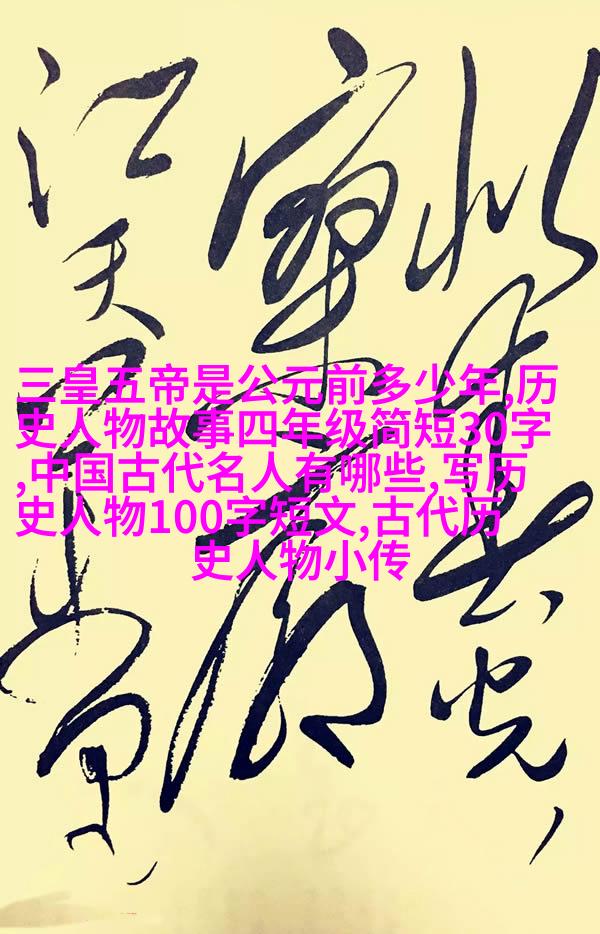 似春光,
寥廓
江天万里霜
三皇五帝是公元前多少年,历
史人物故事四年级简短30字
,中国古代名人有哪些,写历
史人物100字短文,古代历
史人物小传